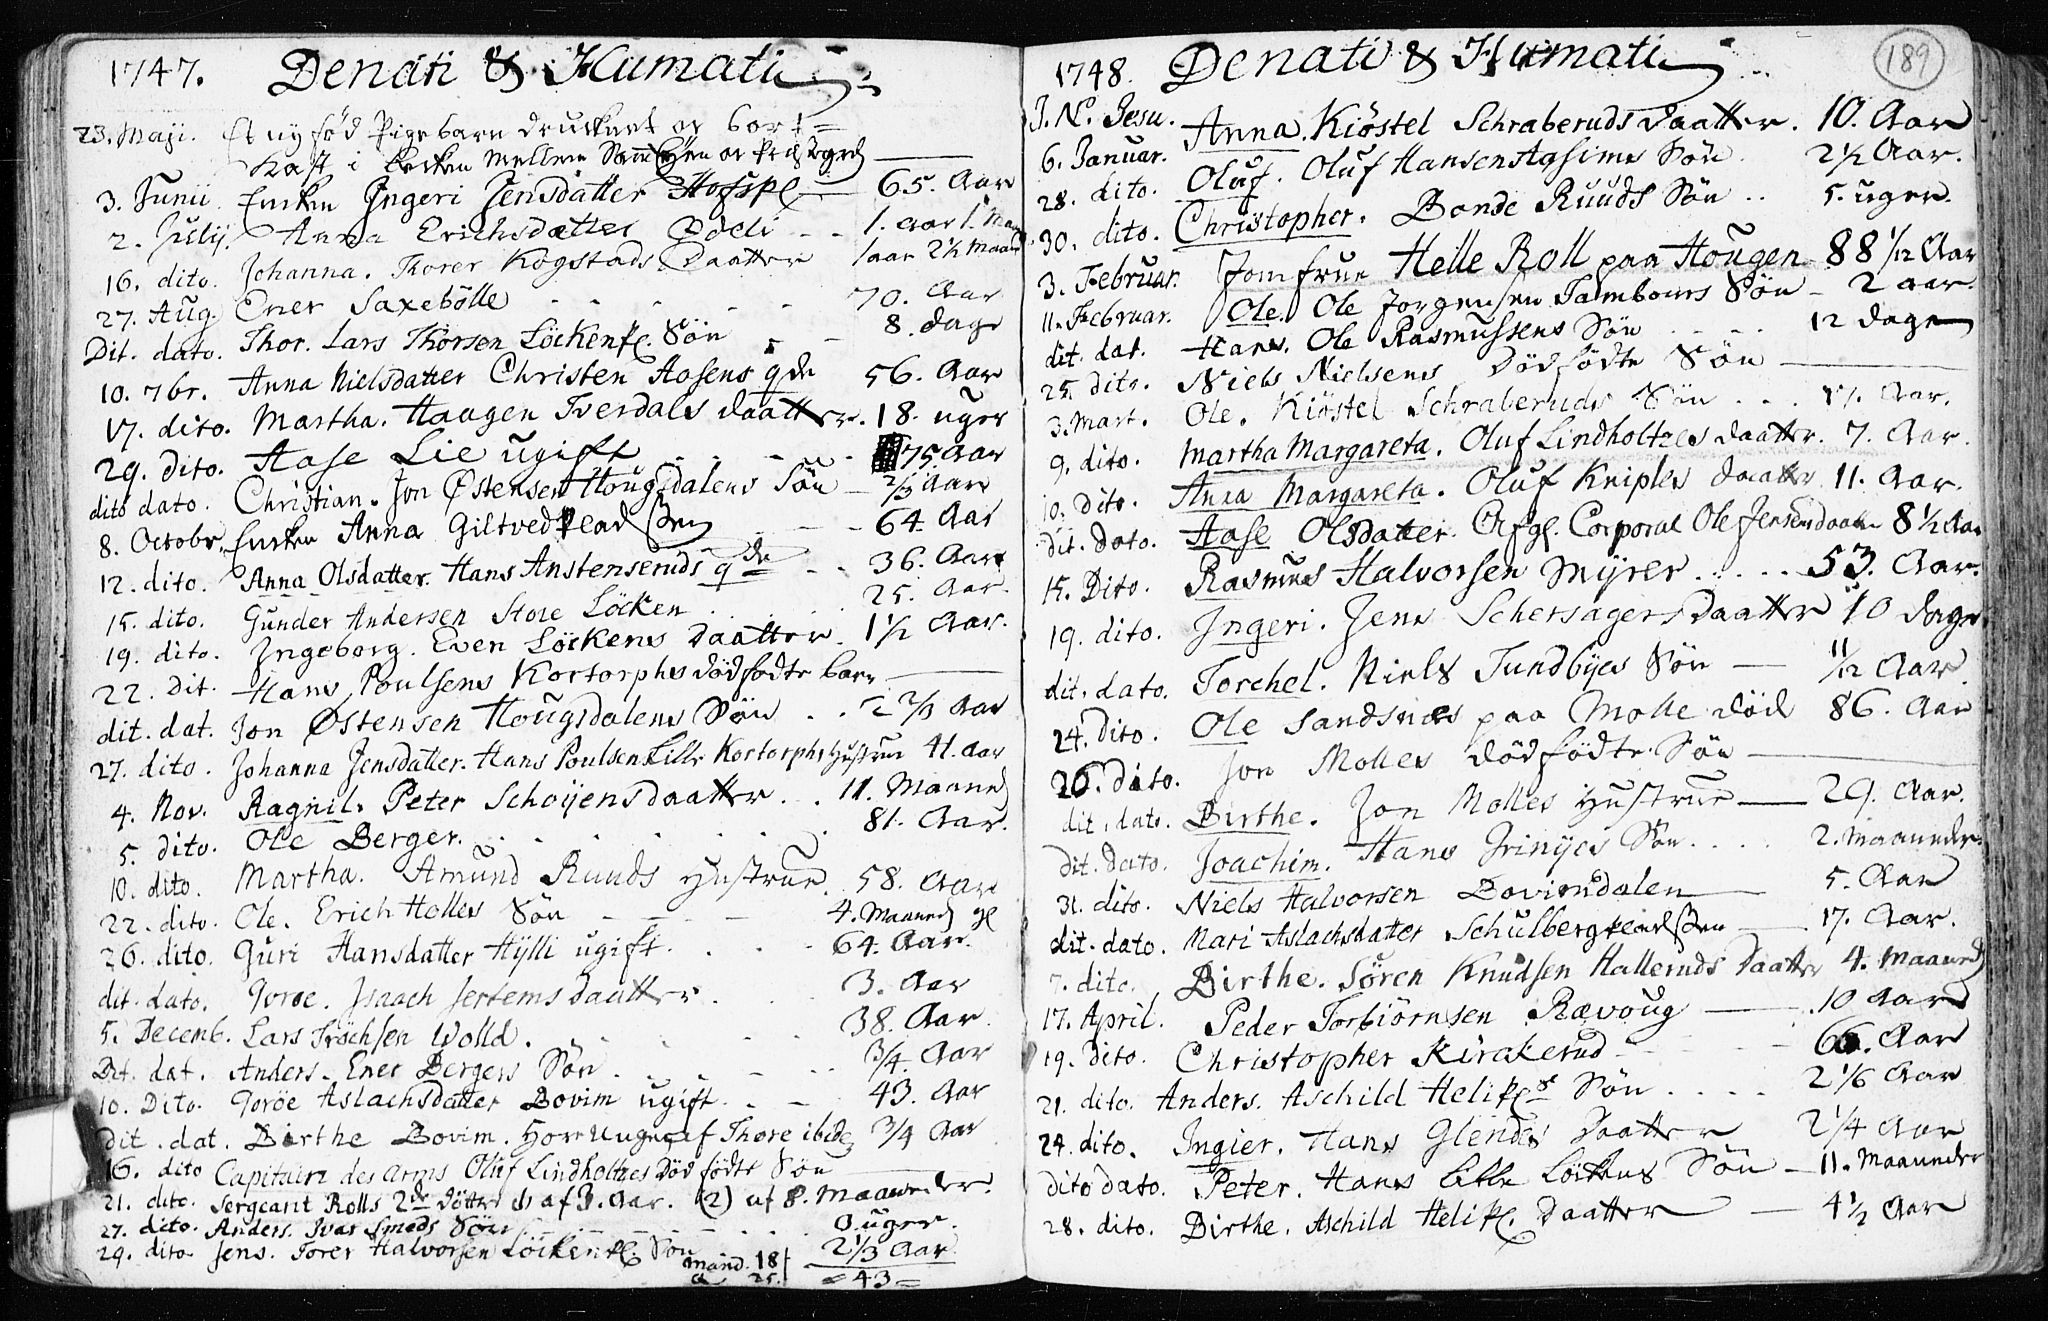 1747. Denati & Humati
23. Maji. Et ny fød Pige barn druknet og bort=
kast i becken mellem
3. Junii. Encken Ingeri Jensdatter Hofspl 65. Aar
2. Julij. Anna Erichsdatter Odeli 1. aar 1. Ma
16. dito. Johanna. Thorer Kogstads Daatter 1 aar 2½ Maan
27. Aug. Ener Saxebölle 70. Aar
Dit. dato. Thor. Lars Thorsen Löckenpl. Sön 8. dage
10. 7br. Anna Nielsdatter Christen Aosens qde 56. Aar
17. dito. Martha. Haagen Tverdals daatter. 18. uger
29. dito. Aase Lie ugift 75. Aar
dito dato. Christian. Jon Østensen Hougsdalens Sön 2/3 Aar
8. Octobr. Encken Anna Giltved 64. Aar
12. dito. Anna Olsdatter. Hans Anstensruds qde 36. Aar
15. dito. Gunder Andersen Store Löcken 25. Aar.
19. dito. Ingeborg. Even Löckens Daatter. 1½ Aar.
22. Dit. Hans Poulsens Kortorphs dödfödte barn
dit. dat. Jon Østensen Hougsdalens Sön 2 2/3 Aar
27. dito. Johanna Jensdatter. Hans Poulsen Lille Kortorphs Hustrue 41. Aar
4. Nov. Ragnil. Peter Schoijens daatter 11. Maaned
5. dito. Ole Berger. 81. Aar.
10. dito. Martha. Amund Ruuds Hustrue. 58. Aar
22. dito. Ole. Erich Holles Sön 4. Maaned gl
26. dito. Guri Hansdatter Hÿlli ugift. 64. Aar.
dit. dato. Goroe. Isaach Jertems daatter. 3. Aar
5. Decemb. Lars Trochsen Wolld. 38. Aar
Dit. dat. Anders. Ener Bergers Sön 3/4. Aar
10. Dito. Goröe Aslachsdatter Bovim ugift. 43. Aar
dit. dat. Birthe Bovim. Hore Unge af Thore ibid 3/4 Aar
16. dito Capitain des Arms Oluf Lindholtzes Död födte Sön
21. dito. Sergeant Rolls 2de Döttre 1) af 3. Aar. (2) af 8. Maaneder.
27. dito. Anders. Ivar Smeds Sön 3 uger.
29. dito. Jens. Torer Halvorsen Löckenpl. Sön 2 1/3 Aar.
Mand. 18
Q 25. = 43 =
1748. Denati & Humati 189
J. N. Jesu.
6. Januar. Anna. Kiöstel Schraberuds Daatter. 10. Aar
28. dito. Oluf. Oluf Hansen Agsims Sön. 2½ Aar.
30. dito. Christopher. Bonde Ruuds Sön 5. uger.
3. Februar. Jomfrue Helle Roll paa Hougen 88 1/12 Aar
11. Februar. Ole. Ole Jorgensen Tambours Sön 2 aar.
dit. dat. Hans. Ole Rasmussens Sön 12 dage
25. dito. Niels Nielsens Dödfödte Sön
3. Mart. Ole. Kiöstel Schraberuds Sön 17. Aar.
9. dito. Martha Margareta. Oluf Lindholtzes daatter. 7. Aar.
10. Dito. Anna Margareta. Oluf Kniples daatter 11. Aar.
Dit. Dato. Aase Olsdatter. Afgl. Corporal Ole Jensens daatter 8½ Aar
15. Dito. Rasmus Halvorsen Mÿrer 53. Aar.
19. dito. Ingeri. Jens Schersagers Daatter 10 dage
dit. dato. Torchel. Niels Tundbÿes Sön 11/12 Aar.
24. Dito. Ole Sandsnes paa Molle död 86. Aar
26. dito. Jon Molles dödfödte Sön
dit. dato. Birthe. Jon Molles Hustrue 29. Aar.
Dit. Dato. Joachim. Hans Frinÿes Sön 2. Maaneder.
31. dito. Niels Halvorsen Bovimdalen 5. Aar
dit. dato. Mari Aslachsdatter Schulberg 17. Aar.
7. dito. Birthe. Sören Knudsen Halleruds Daatter 4. Maaned
17. April. Peder Torbiörnsen Rævoug 10 Aar
19. Dito. Christopher Kirakerud 66. Aar
21. dito. Anders. Aschild Helipls Sön 2 1/6 Aar
24. dito. Ingier. Hans Glendes Daatter 2 1/4 Aar
Dito dato. Peter. Hans Lille Löckens Sön 11. Maaneder
28. dito. Birthe. Aschild Helipl. Daatter 4½ Aar